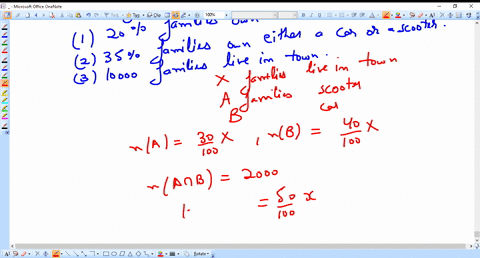 Microsoft Office OneNote
families own
(1) 20%
(2) 35% families own either a car or a scooter
(3) 10000 families live in town.
X families live in town
A families scooter
B car
n(A) = 30/100 X , n(B) = 40/100 X
n(A∩B) = 2000
= 50/100 x